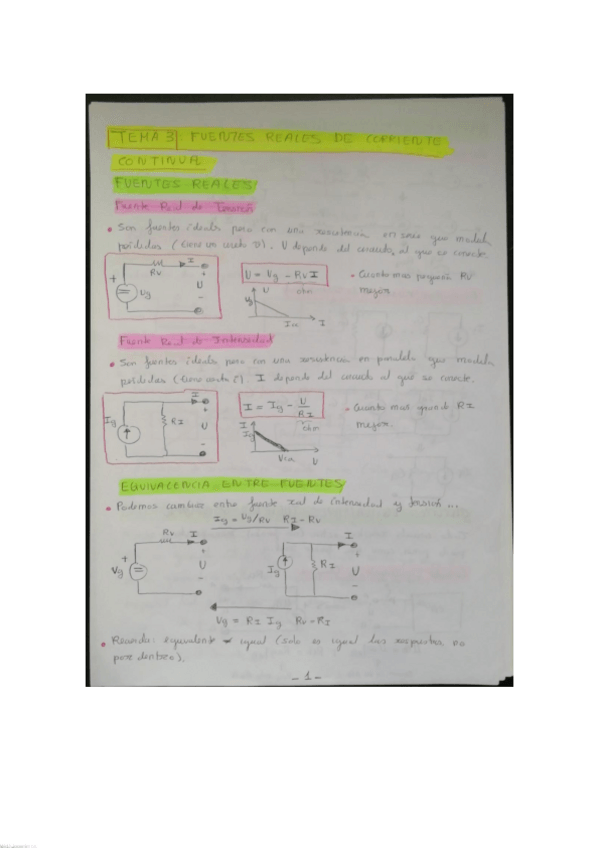 TEMA 3 FUENTES REALES DE CORRIENTE
CONTINUA
FUENTES REALES
Fuente Real de Tensión
• Son fuentes ideales pero con una resistencia en serie que modela
pérdidas (tiene un cierto Ω). U depende del circuito al que se conecte.
+ Rv I + U - Vg
U = Vg - Rv I
ohm
U Vg Icc I
• Cuanto mas pequeña Rv
mejor.
Fuente Real de Intensidad
• Son fuentes ideales pero con una resistencia en paralelo que modela
pérdidas (tiene cierta). I depende del circuito al que se conecte.
Ig RI I + U -
I = Ig - U/RI
ohm
I Ig U
• Cuanto mas grande RI
mejor.
EQUIVALENCIA ENTRE FUENTES
• Podemos cambiar entre fuente real de intensidad y tensión ...
Ig = Vg/Rv RI = Rv
+ Vg Rv I + U -
Ig RI I + U -
Vg = RI Ig Rv = RI
• Recuerda: equivalente ≠ igual (solo es igual las respuestas no
por dentro).
- 1 -